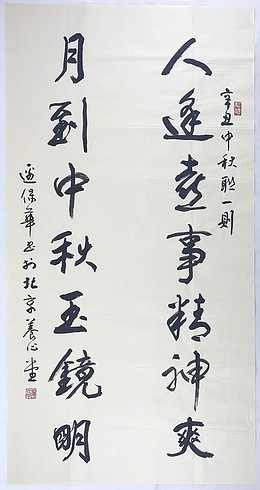 辛丑中秋联一则
人逢喜事精神爽
月到中秋玉镜明
保华书于北京养心堂